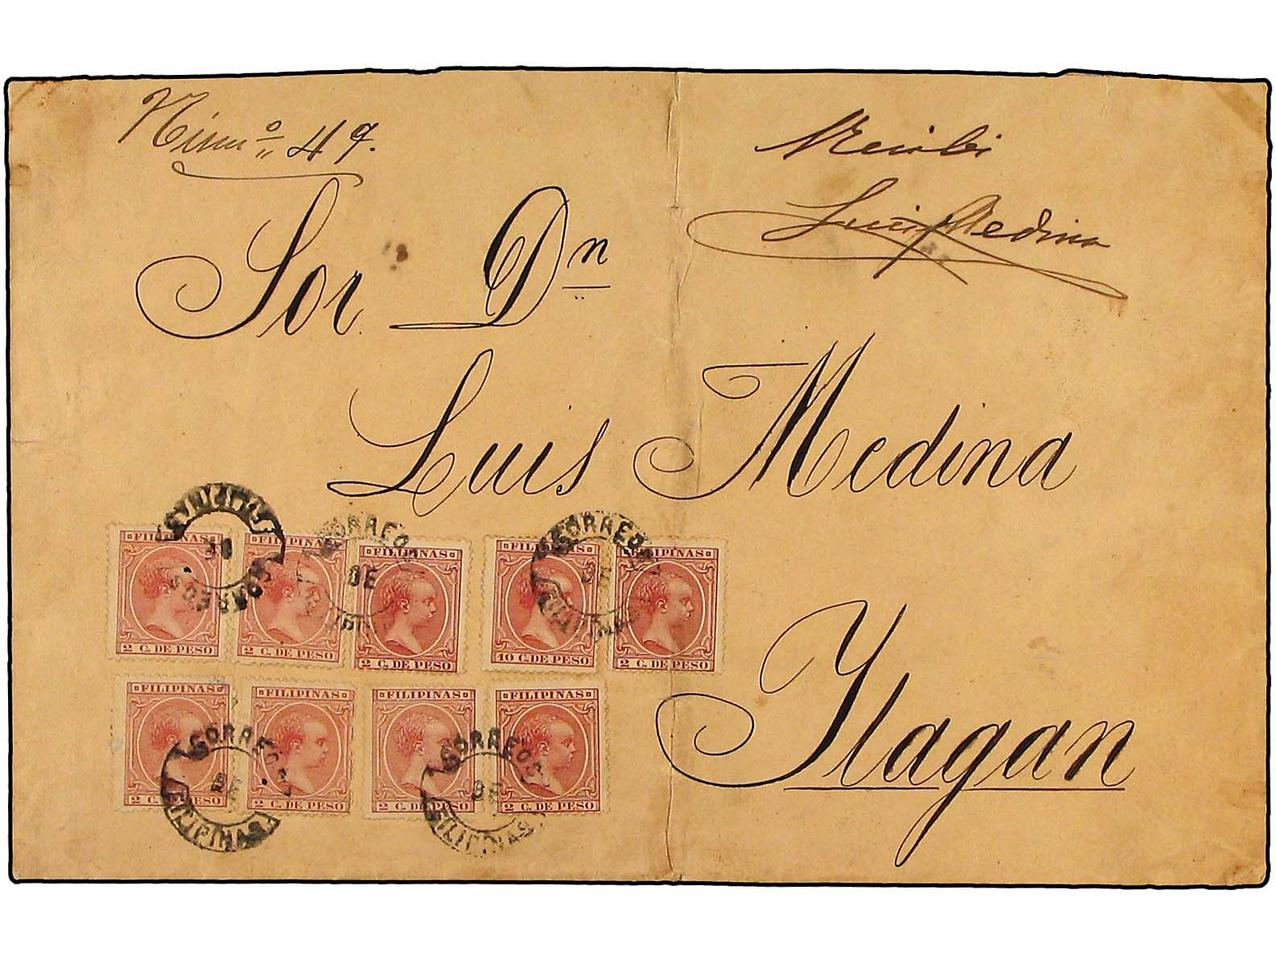 Núm.º 49.
Recibí
Luis Medina
Sor. Dn
Luis Medina
Ylagan
FILIPINAS FILIPINAS FILIPINAS FILIPINAS FILIPINAS
2 C. DE PESO 2 C. DE PESO 2 C. DE PESO 10 C. DE PESO 2 C. DE PESO
CORREOS DE FILIPINAS
CORREOS DE FILIPINAS
CORREOS DE FILIPINAS
FILIPINAS FILIPINAS FILIPINAS FILIPINAS
2 C. DE PESO 2 C. DE PESO 2 C. DE PESO 2 C. DE PESO
CORREOS DE FILIPINAS
CORREOS DE FILIPINAS